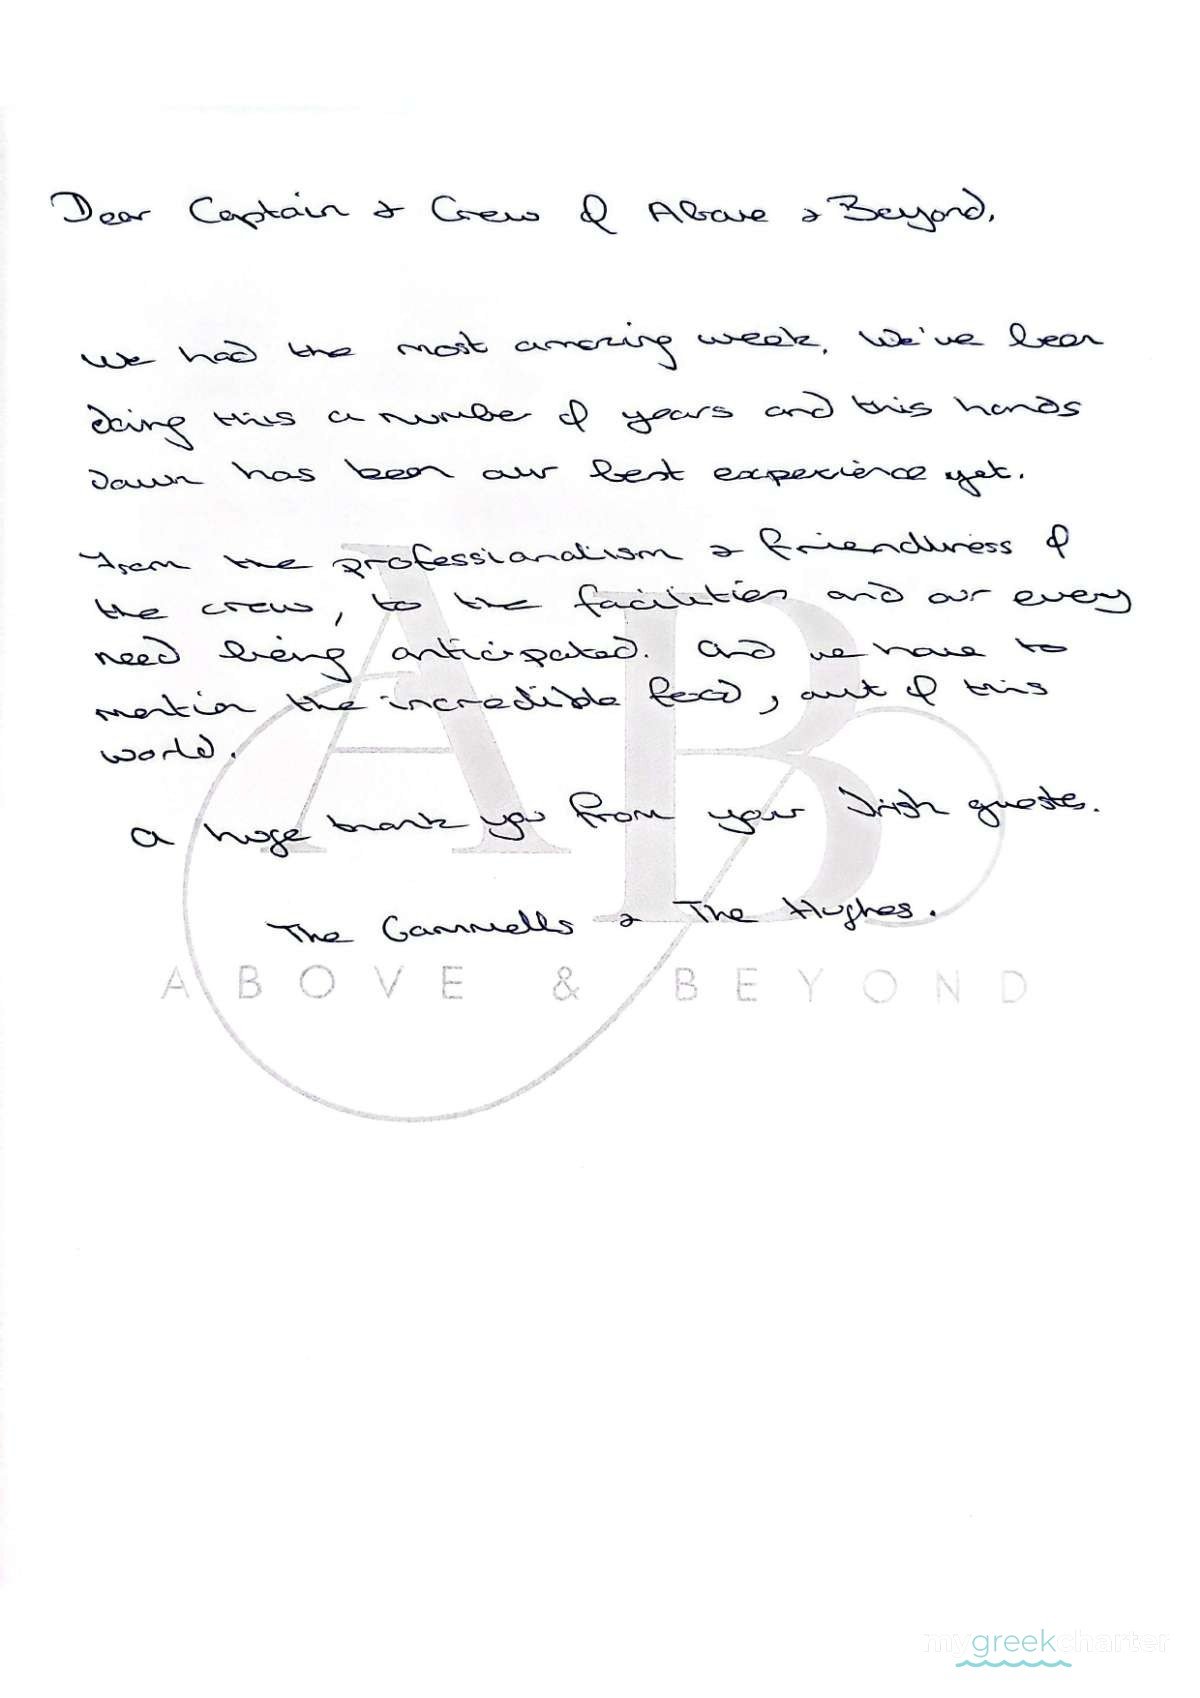 Dear Captain & Crew of Above & Beyond,
We had the most amazing week. We've been
doing this a number of years and this hands
down has been our best experience yet.
From the professionalism & friendliness of
the crew, to the facilities and our every
need being anticipated. And we have to
mention the incredible food, out of this
world.
A huge thank you from your Irish guests.
The & The Hughes.
AB
ABOVE & BEYOND
mygreekcharter